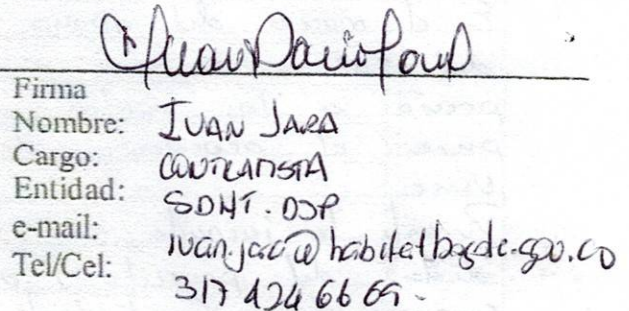 Firma
Nombre: IVAN JARA
Cargo: CONTRATISTA
Entidad: SDHT. DSP
e-mail: ivan.jara@habitatbogota.gov.co
Tel/Cel: 317 424 66 69.